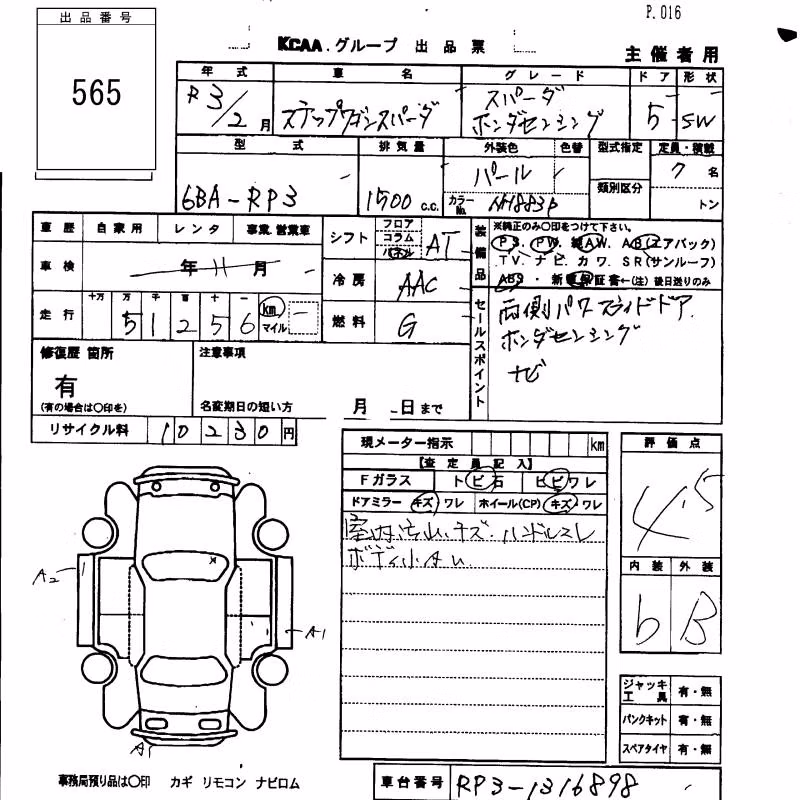 P.016
出品番号
565
KCAA.グループ 出品票
主催者用
年式 車名 グレード ドア 形状
R3/2月 ステップワゴンスパーダ スパーダ ホンダセンシング 5 SW
型式 排気量 外装色 色替 型式指定 定員・積載
6BA-RP3 1500 c.c. パール カラーNo. NH883P 類別区分 7名 トン
車歴 自家用 レンタ 事業.営業車
シフト フロア コラム パネル AT
装備品 ※純正のみ○印をつけて下さい。
PS. PW. AW. AB(エアバック)
TV. ナビ. カワ. SR(サンルーフ)
ABS・新車保証書←(注)後日送りのみ
車検 年 11 月
冷房 AAC
走行 十万 万 千 百 十 一 51256 km マイル
燃料 G
セールスポイント
両側パワースライドドア
ホンダセンシング
ナビ
修復歴 箇所
有
(有の場合は○印を)
注意事項
名変期日の短い方 月 日まで
リサイクル料 10230円
現メーター指示 km
【査定員記入】
Fガラス トビ石 ヒビワレ
ドアミラー キズ・ワレ ホイール(CP) キズ・ワレ
室内汚れ.キズ.ハンドルスレ
ボディ小キズ
評価点
4.5
内装 外装
b B
A2
A1
A1
ジャッキ工具 有・無
パンクキット 有・無
スペアタイヤ 有・無
事務局預り品は○印 カギ リモコン ナビロム
車台番号 RP3-1316898